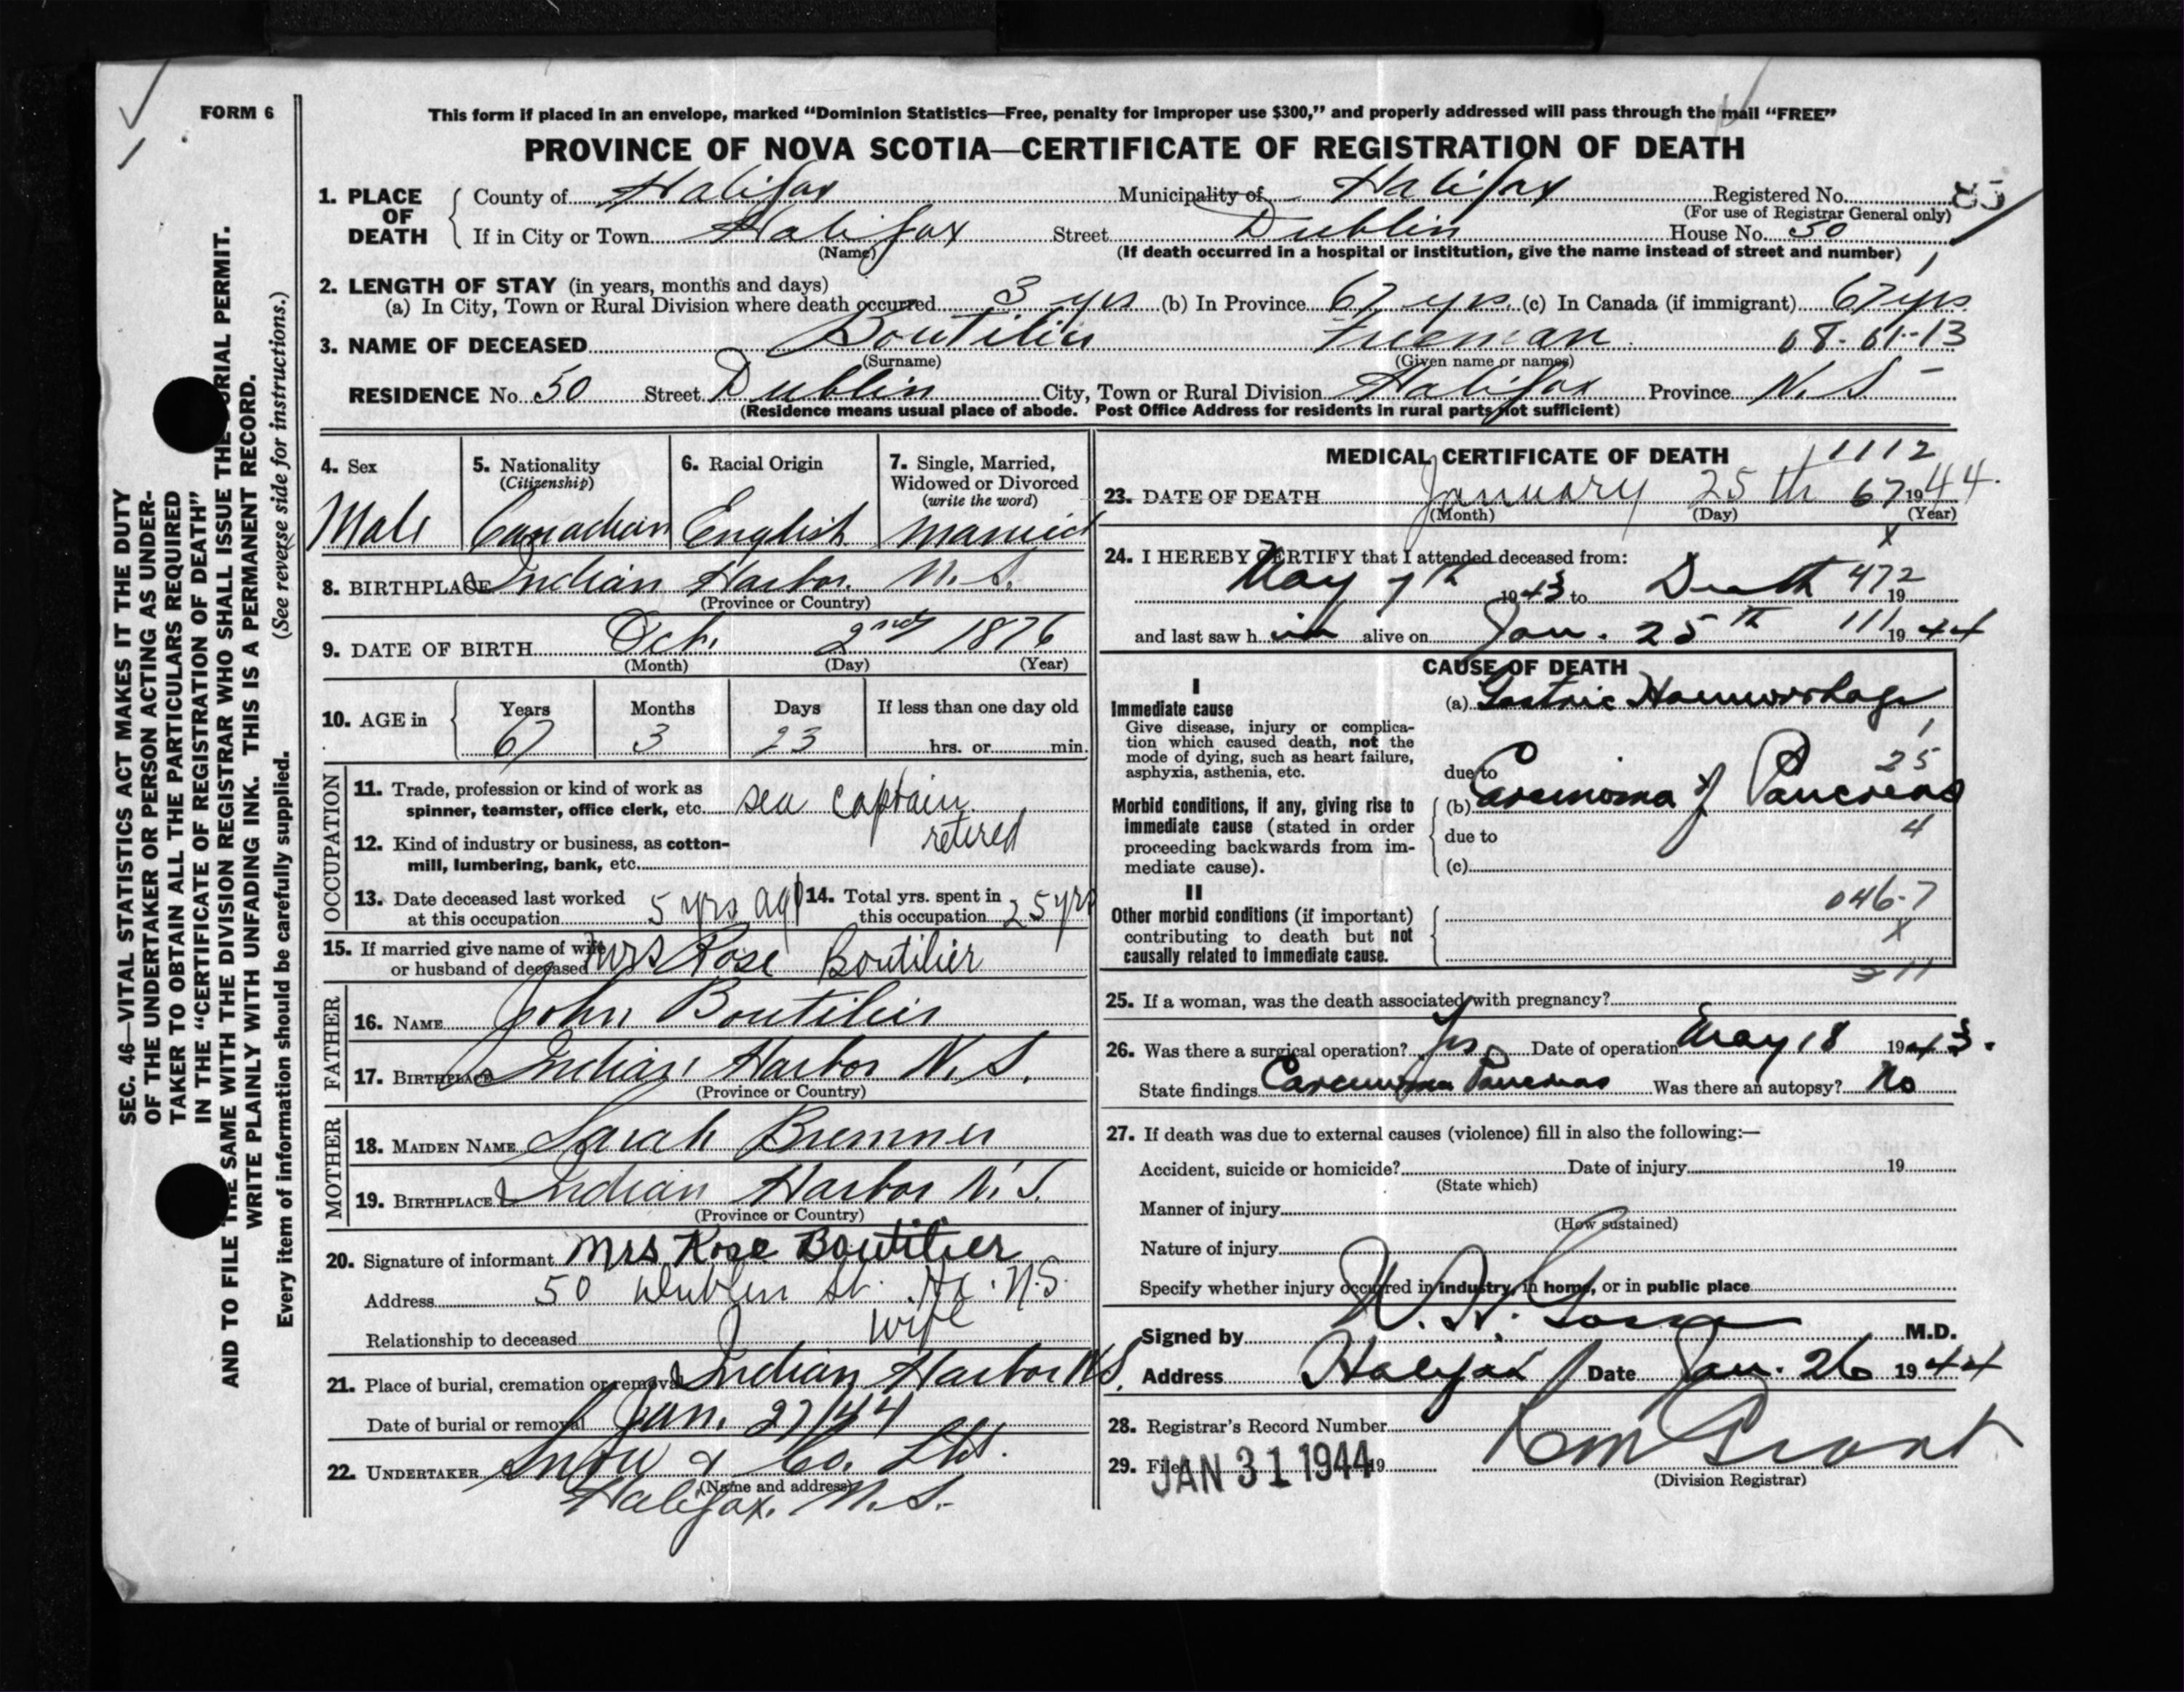 FORM 6
This form if placed in an envelope, marked “Dominion Statistics—Free, penalty for improper use $300,” and properly addressed will pass through the mail “FREE”
PROVINCE OF NOVA SCOTIA—CERTIFICATE OF REGISTRATION OF DEATH
1. PLACE OF DEATH County of Halifax Municipality of Halifax Registered No. 85
(For use of Registrar General only)
If in City or Town Halifax Street Dublin House No. 50
(Name) (If death occurred in a hospital or institution, give the name instead of street and number)
2. LENGTH OF STAY (in years, months and days)
(a) In City, Town or Rural Division where death occurred 3 yrs (b) In Province 67 yrs. (c) In Canada (if immigrant) 67 yrs
3. NAME OF DECEASED Boutilier Freeman 08-01-13
(Surname) (Given name or names)
RESIDENCE No. 50 Street Dublin City, Town or Rural Division Halifax Province N.S.
(Residence means usual place of abode. Post Office Address for residents in rural parts not sufficient)
4. Sex
Male
5. Nationality
(Citizenship)
Canadian
6. Racial Origin
English
7. Single, Married,
Widowed or Divorced
(write the word)
Married
8. BIRTHPLACE Indian Harbor. N.S.
(Province or Country)
9. DATE OF BIRTH Oct. 2nd 1876
(Month) (Day) (Year)
10. AGE in Years Months Days If less than one day old
67 3 23 hrs. or min.
OCCUPATION
11. Trade, profession or kind of work as
spinner, teamster, office clerk, etc. sea captain
retired
12. Kind of industry or business, as cotton-
mill, lumbering, bank, etc.
13. Date deceased last worked
at this occupation 5 yrs ago
14. Total yrs. spent in
this occupation 25 yrs
15. If married give name of wife
or husband of deceased Mrs Rose Boutilier
FATHER
16. NAME John Boutilier
17. BIRTHPLACE Indian Harbor N.S.
(Province or Country)
MOTHER
18. MAIDEN NAME Sarah Bremner
19. BIRTHPLACE Indian Harbor N.S.
(Province or Country)
20. Signature of informant Mrs Rose Boutilier
Address 50 Dublin St. Hx. N.S.
Relationship to deceased wife
21. Place of burial, cremation or removal Indian Harbor N.S.
Date of burial or removal Jan. 27/44
22. UNDERTAKER Snow & Co. Ltd.
(Name and address)
Halifax, N.S.
MEDICAL CERTIFICATE OF DEATH 1112
23. DATE OF DEATH January 25th 67 1944.
(Month) (Day) (Year)
x
24. I HEREBY CERTIFY that I attended deceased from:
May 7th 1943 to Death 472 19
and last saw h im alive on Jan. 25th 111 1944
CAUSE OF DEATH
I
Immediate cause
Give disease, injury or complica-
tion which caused death, not the
mode of dying, such as heart failure,
asphyxia, asthenia, etc.
(a) Gastric Haemorrhage
1
25
due to
Morbid conditions, if any, giving rise to
immediate cause (stated in order
proceeding backwards from im-
mediate cause).
(b) Carcinoma of Pancreas
4
due to
(c)
II
Other morbid conditions (if important)
contributing to death but not
causally related to immediate cause.
046-7
x
25. If a woman, was the death associated with pregnancy?
26. Was there a surgical operation? Yes Date of operation May 18 1943.
State findings Carcinoma Pancreas Was there an autopsy? No
27. If death was due to external causes (violence) fill in also the following:—
Accident, suicide or homicide? Date of injury 19
(State which)
Manner of injury
(How sustained)
Nature of injury
Specify whether injury occurred in industry, in home, or in public place
Signed by W. H. M.D.
Address Halifax Date Jan. 26 1944
28. Registrar's Record Number
29. Filed JAN 31 1944 19 Grant
(Division Registrar)
SEC. 46—VITAL STATISTICS ACT MAKES IT THE DUTY
OF THE UNDERTAKER OR PERSON ACTING AS UNDER-
TAKER TO OBTAIN ALL THE PARTICULARS REQUIRED
IN THE “CERTIFICATE OF REGISTRATION OF DEATH”
AND TO FILE THE SAME WITH THE DIVISION REGISTRAR WHO SHALL ISSUE THE BURIAL PERMIT.
WRITE PLAINLY WITH UNFADING INK. THIS IS A PERMANENT RECORD.
(See reverse side for instructions.)
Every item of information should be carefully supplied.